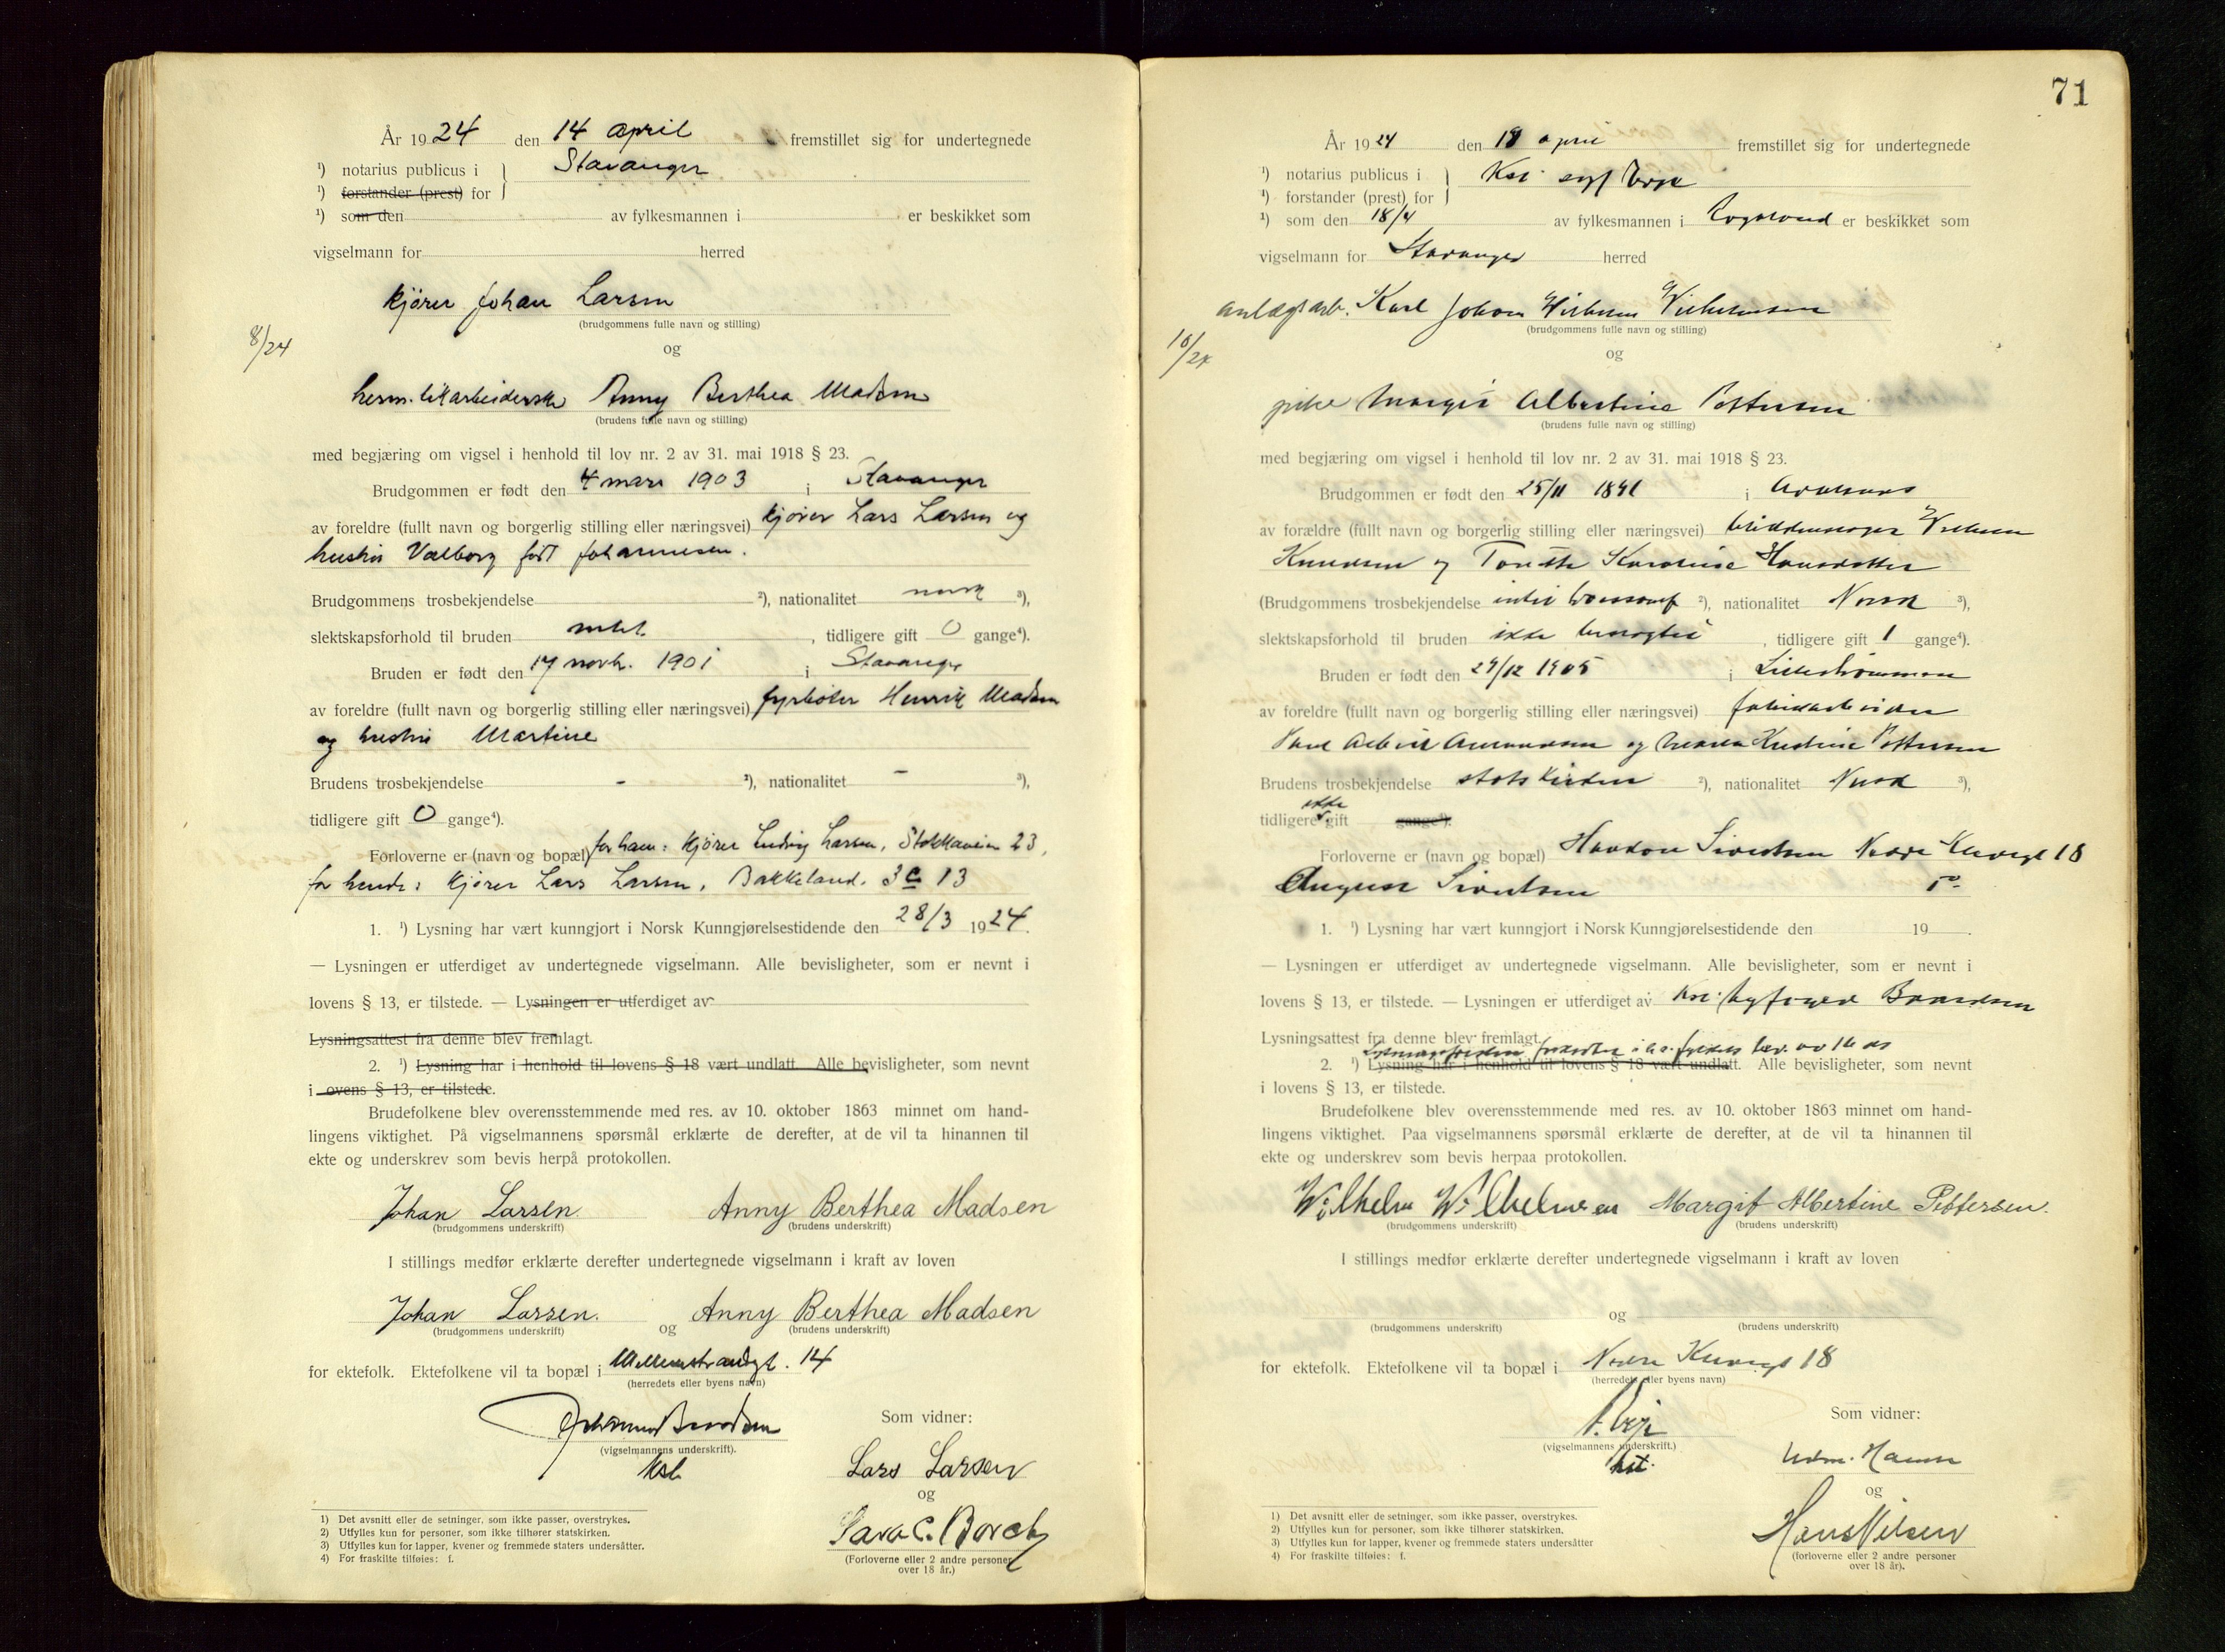 År 1924 den 14 april fremstillet sig for undertegnede
¹) notarius publicus i } Stavanger
¹) forstander (prest) for
¹) som den av fylkesmannen i er beskikket som
vigselmann for herred
kjører Johan Larsen
(brudgommens fulle navn og stilling)
8/24
og
herm. Anny Berthea Madsen
(brudens fulle navn og stilling)
med begjæring om vigsel i henhold til lov nr. 2 av 31. mai 1918 § 23.
Brudgommen er født den 4 mars 1903 i Stavanger
av foreldre (fullt navn og borgerlig stilling eller næringsvei) kjører Lars Larsen og
hustru Valborg født Johannesen.
Brudgommens trosbekjendelse ²), nationalitet norsk ³),
slektskapsforhold til bruden intet, tidligere gift 0 gange⁴).
Bruden er født den 17 novb. 1901 i Stavanger
av foreldre (fullt navn og borgerlig stilling eller næringsvei) fyrbøter Henrik Madsen
og hustru Martine
Brudens trosbekjendelse - ²), nationalitet - ³),
tidligere gift 0 gange⁴).
Forloverne er (navn og bopæl) for ham: kjører Ludvig Larsen, Stokkaveien 23,
for hende: kjører Lars Larsen, Bakkeland. 3c 13
1. ¹) Lysning har vært kunngjort i Norsk Kunngjørelsestidende den 28/3 1924.
— Lysningen er utferdiget av undertegnede vigselmann. Alle bevisligheter, som er nevnt i
lovens § 13, er tilstede. — Lysningen er utferdiget av
Lysningsattest fra denne blev fremlagt.
2. ¹) Lysning har i henhold til lovens § 18 vært undlatt. Alle bevisligheter, som nevnt
i lovens § 13, er tilstede.
Brudefolkene blev overensstemmende med res. av 10. oktober 1863 minnet om hand-
lingens viktighet. På vigselmannens spørsmål erklærte de derefter, at de vil ta hinannen til
ekte og underskrev som bevis herpå protokollen.
Johan Larsen. Anny Berthea Madsen
(brudgommens underskrift) (brudens underskrift)
I stillings medfør erklærte derefter undertegnede vigselmann i kraft av loven
Johan Larsen. og Anny Berthea Madsen
(brudgommens underskrift) (brudens underskrift)
for ektefolk. Ektefolkene vil ta bopæl i 14
(herredets eller byens navn)
Som vidner:
(vigselmannens underskrift).
Kst.
Lars Larsen
og
Sara C. Borch
(Forloverne eller 2 andre personer
over 18 år.)
1) Det avsnitt eller de setninger, som ikke passer, overstrykes.
2) Utfylles kun for personer, som ikke tilhører statskirken.
3) Utfylles kun for lapper, kvener og fremmede staters undersåtter.
4) For fraskilte tilføies: f.
71
År 1924 den 18 april fremstillet sig for undertegnede
¹) notarius publicus i } Kst.
¹) forstander (prest) for
¹) som den 18/4 av fylkesmannen i Rogaland er beskikket som
vigselmann for Stavanger herred
anlægsarb. Karl Johan Wilhelm Wilhelmsen
(brudgommens fulle navn og stilling)
10/24
og
pike Margit Albertine Pettersen
(brudens fulle navn og stilling)
med begjæring om vigsel i henhold til lov nr. 2 av 31. mai 1918 § 23.
Brudgommen er født den 25/11 i
av forældre (fullt navn og borgerlig stilling eller næringsvei) Wilhelm
Knudsen og Karoline Hansdatter
(Brudgommens trosbekjendelse ²), nationalitet Norsk ³),
slektskapsforhold til bruden ikke beslægtet, tidligere gift 1 gange⁴).
Bruden er født den 29/12 1905 i Lillestrømmen
av foreldre (fullt navn og borgerlig stilling eller næringsvei) fabrikarbeider
og Kristine Pettersen
Brudens trosbekjendelse statskirken ²), nationalitet Norsk ³),
tidligere ikke gift gange⁴).
Forloverne er (navn og bopæl) Haakon Sivertsen Nedre 18
August Sivertsen
1. ¹) Lysning har vært kunngjort i Norsk Kunngjørelsestidende den 19 .
— Lysningen er utferdiget av undertegnede vigselmann. Alle bevisligheter, som er nevnt i
lovens § 13, er tilstede. — Lysningen er utferdiget av kst. byfoged
Lysningsattest fra denne blev fremlagt.
2. ¹) Lysning har i henhold til lovens § 18 vært undlatt. Alle bevisligheter, som nevnt
i lovens § 13, er tilstede.
Brudefolkene blev overensstemmende med res. av 10. oktober 1863 minnet om hand-
lingens viktighet. Paa vigselmannens spørsmål erklærte de derefter, at de vil ta hinannen til
ekte og underskrev som bevis herpaa protokollen.
Wilhelm Wilhelmsen Margit Albertine Pettersen.
(brudgommens underskrift) (brudens underskrift)
I stillings medfør erklærte derefter undertegnede vigselmann i kraft av loven
og
(brudgommens underskrift) (brudens underskrift)
for ektefolk. Ektefolkene vil ta bopæl i Nedre 18
(herredets eller byens navn)
Som vidner:
(vigselmannens underskrift.)
kst.
og
Hans Nilsen
(forloverne eller 2 andre personer
over 18 år).
1) Det avsnitt eller de setninger, som ikke passer, overstrykes.
2) Utfylles kun for personer, som ikke tilhører statskirken.
3) Utfylles kun for lapper, kvener og fremmede staters undersåtter
4) For fraskilte tilføies: f.